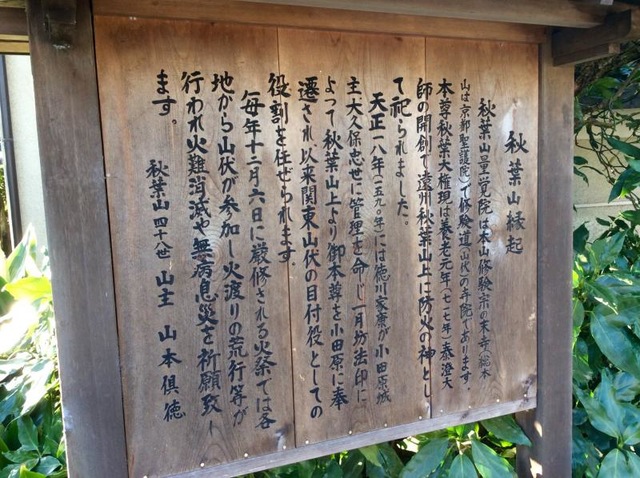 秋葉山縁起
秋葉山量覚院は本山修験宗の末寺(総本
山は京都聖護院)で修験道(山伏)の寺院であります。
本尊秋葉大権現は養老元年(七一七年)泰澄大
師の開創で遠州秋葉山上に防火の神とし
て祀られました。
天正一八年(一五九〇年)には徳川家康が小田原城
主大久保忠世に管理を命じ一月坊法印に
よって秋葉山上より御本尊を小田原に奉
遷され以来関東山伏の目付役としての
役割を任ぜられます。
毎年十二月六日に厳修される火祭では各
地から山伏が参加し火渡りの荒行等が
行われ火難消滅や無病息災を祈願致し
ます。
秋葉山四十八世 山主 山本倶徳